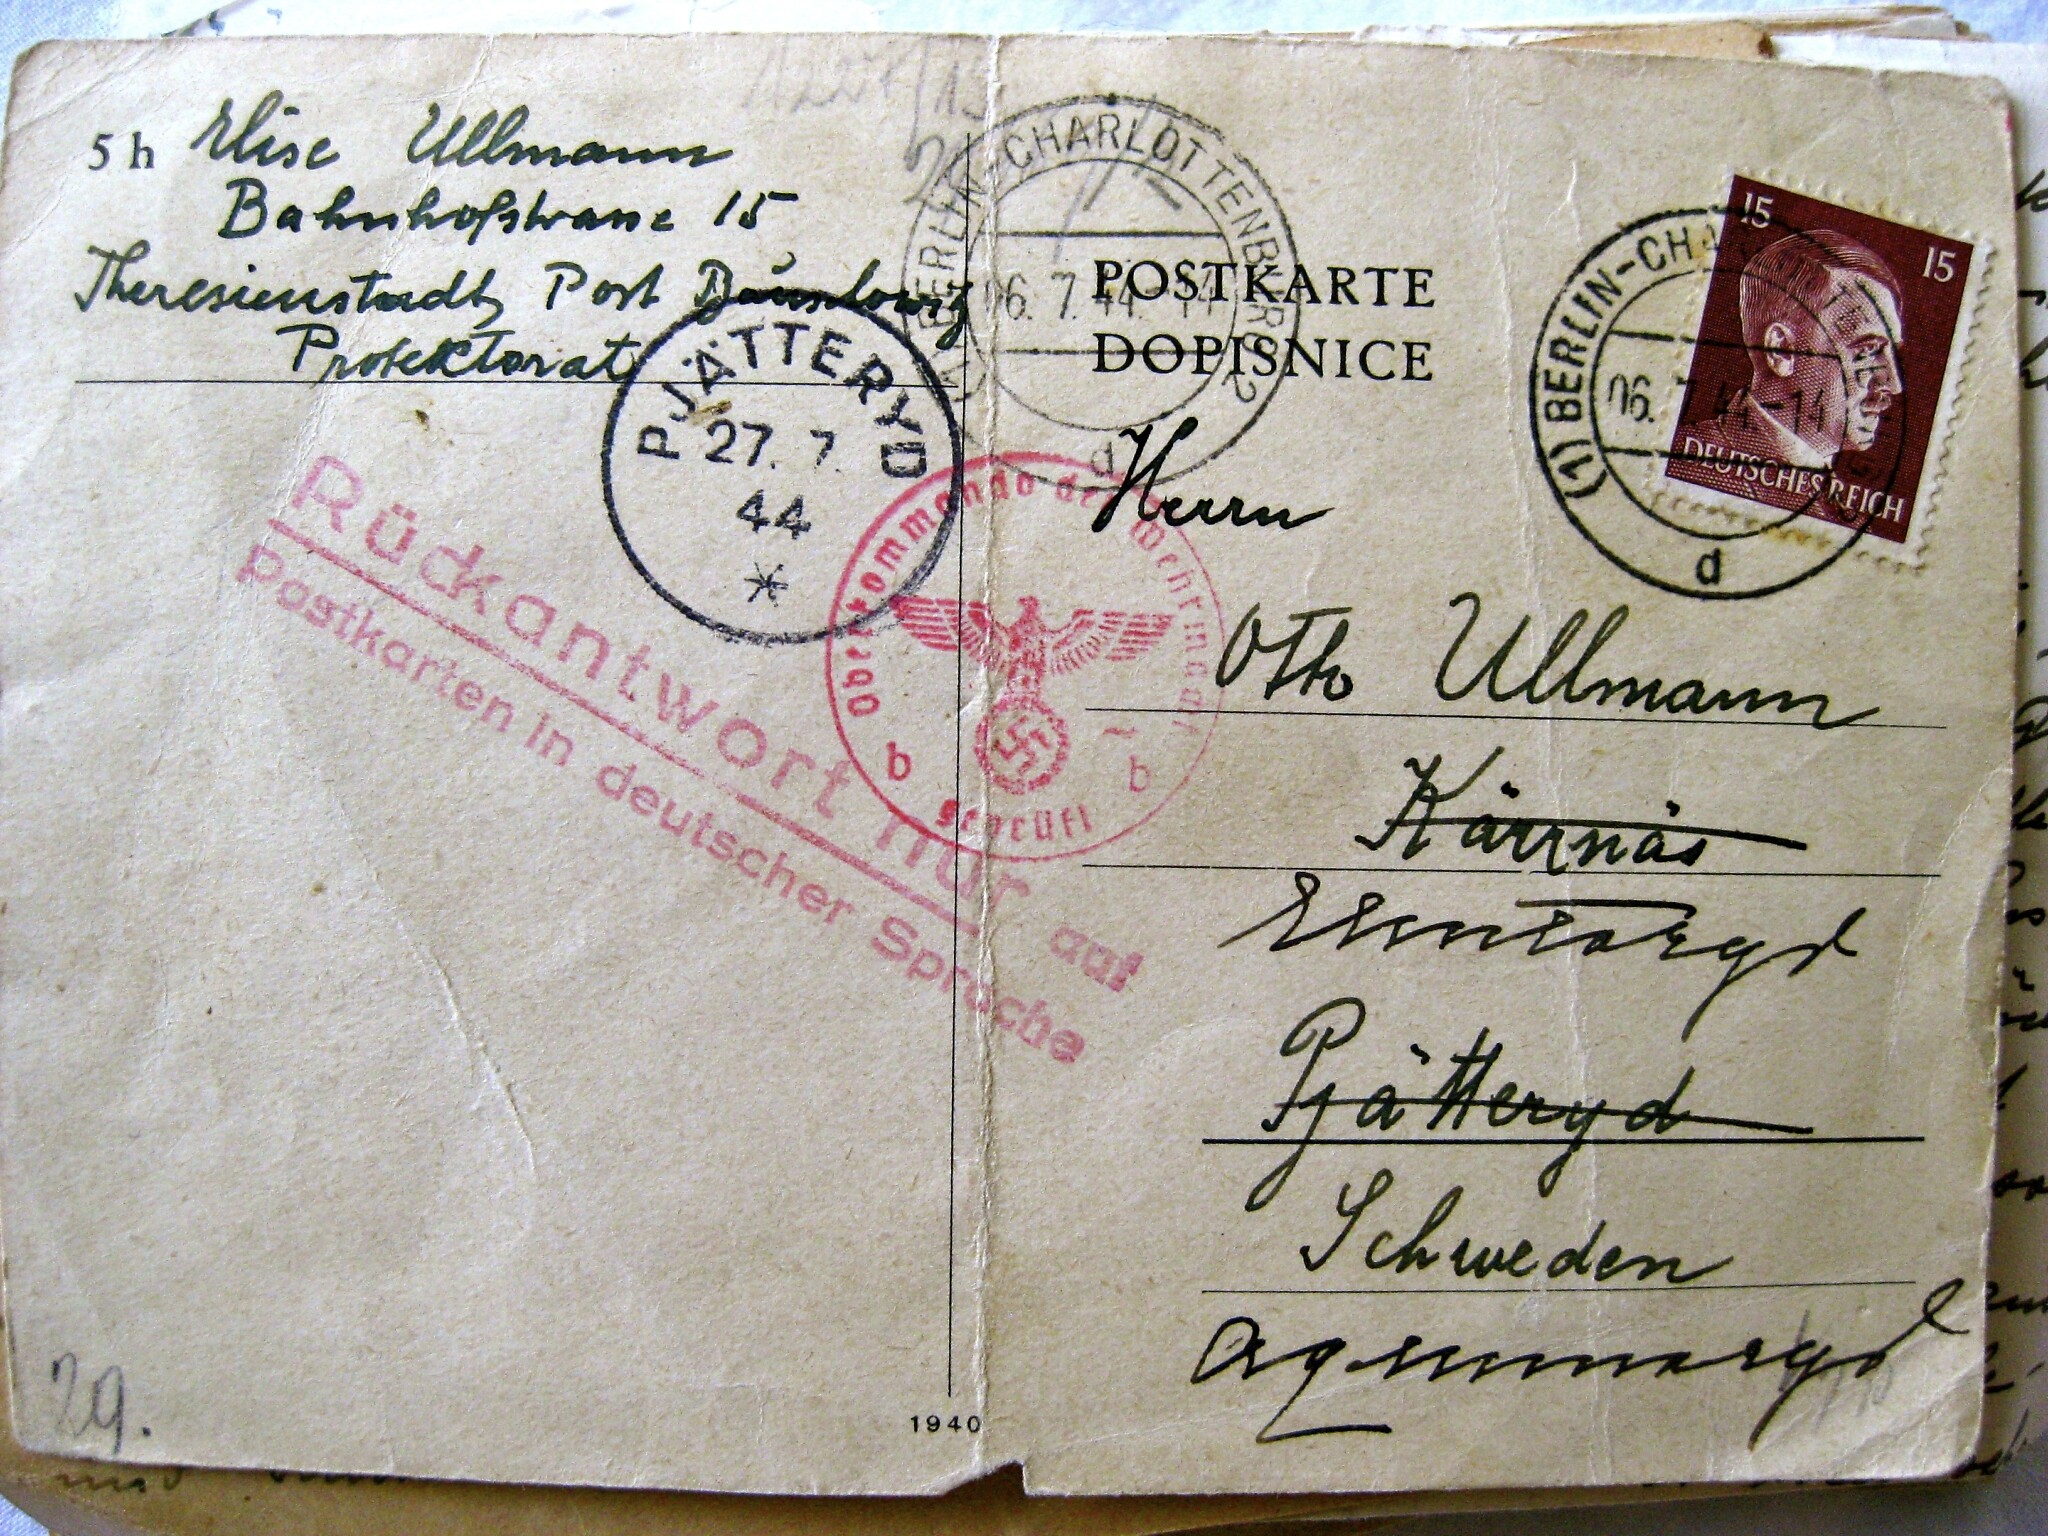 5 h Elise Ullmann
Bahnhofstrasse 15
Theresienstadt, Post Bauschowitz
Protektorat
BERLIN-CHARLOTTENBURG 2
06.7.44.-14
d
POSTKARTE
DOPISNICE
(1) BERLIN-CHARLOTTENBURG
06.7.44-14
d
15
15
DEUTSCHES REICH
PJÄTTERYD
27.7.
44
Rückantwort nur auf
Postkarten in deutscher Sprache
Oberkommando der Wehrmacht
b b
geprüft
Herrn
Otto Ullmann
Kärrnäs
Pjätteryd
Schweden
1940
29.